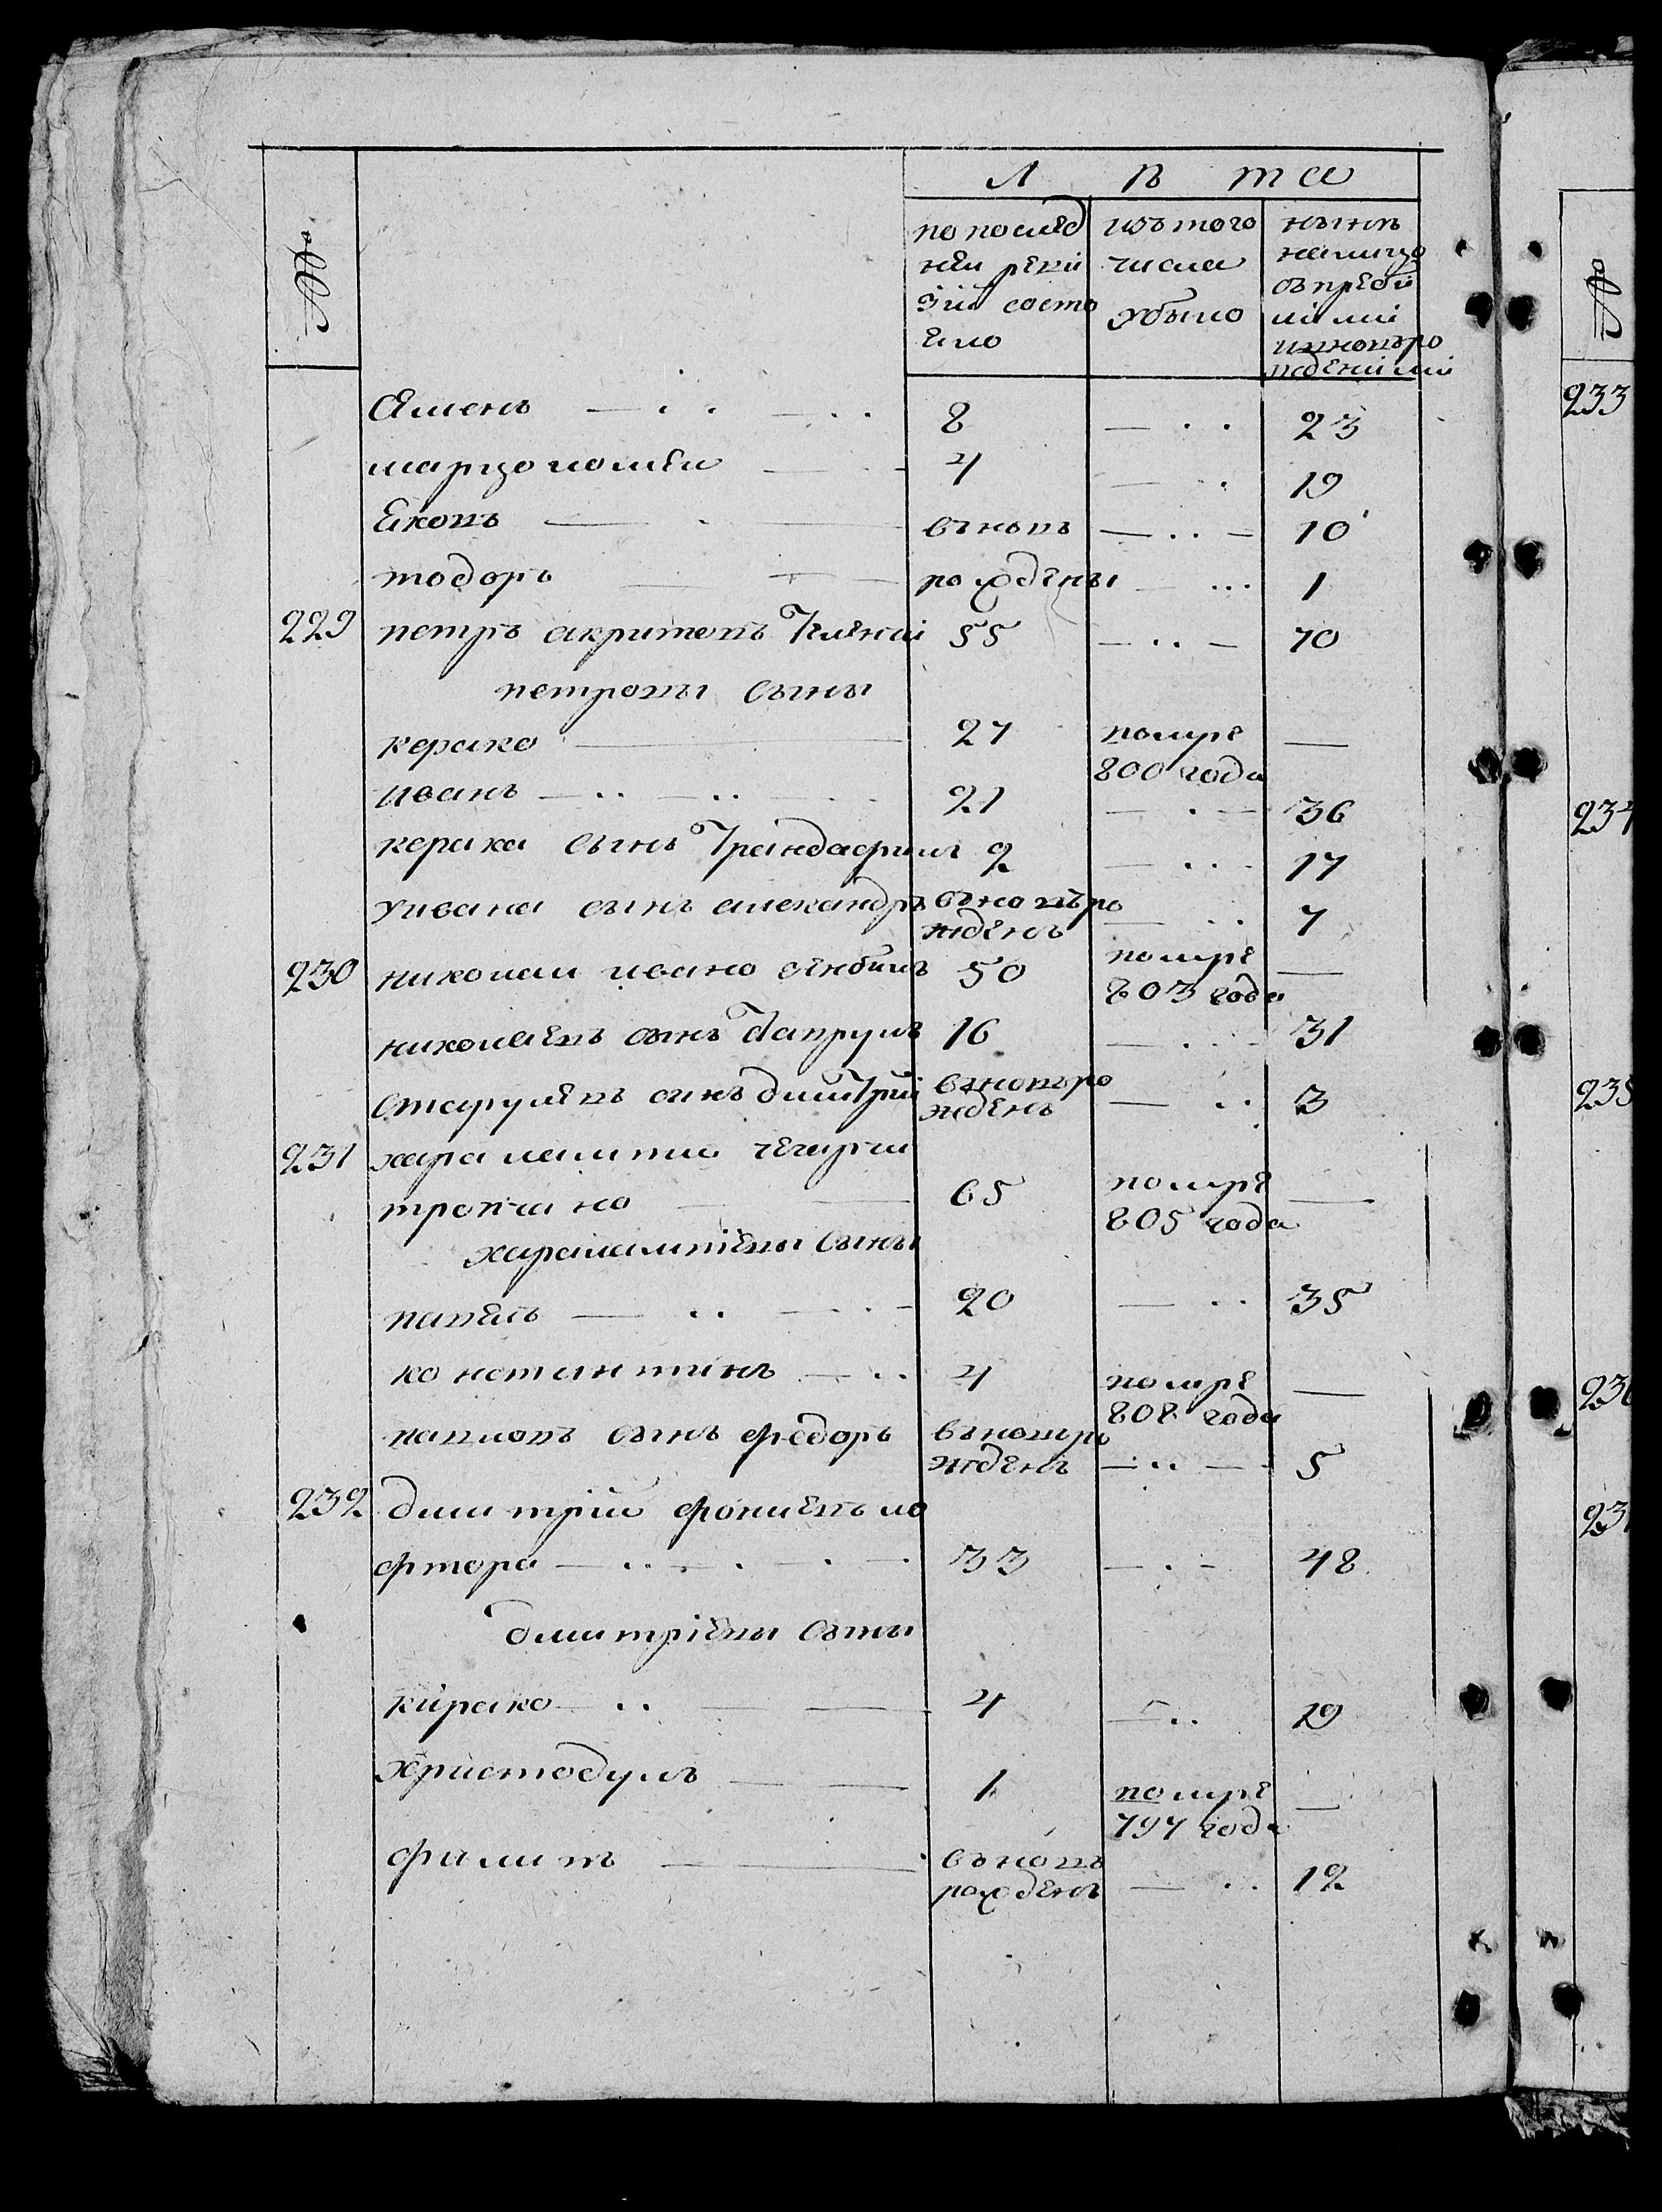 №
Лѣта
по послѣд
ней реви
зіи состо
яло
изъ того
числа
убыло
нынѣ
налицо
съ прибы
лыми
и вновъро
жденными
Семенъ — 8 — 23
4 — 19
Яковъ — вновъ — 10
тодоръ — рождены — 1
229 петръ акритовъ 55 — 70
петровы сыны
керако — 27 помре —
800 года
иванъ — 21 — 36
керака сынъ Трандафилъ 2 — 17
Уивана сынъ александръ вновъро
жденъ — 7
230 николаи ивано 50 помре —
803 года
николаевъ сынъ 16 — 31
сынъ дмитрій вновъро
жденъ — 3
231 харалампи
65 помре —
805 года
харалампіевы сыны
павелъ — 20 — 35
константинъ — 4 помре —
808 года
павловъ сынъ федоръ вновъро
жденъ — 5
232 дмитрій
33 — 48
дмитріевы сыны
кирако — 4 — 19
христодулъ — 1 помре —
797 года
филипъ — вновъ
рожденъ — 12
233
234
235